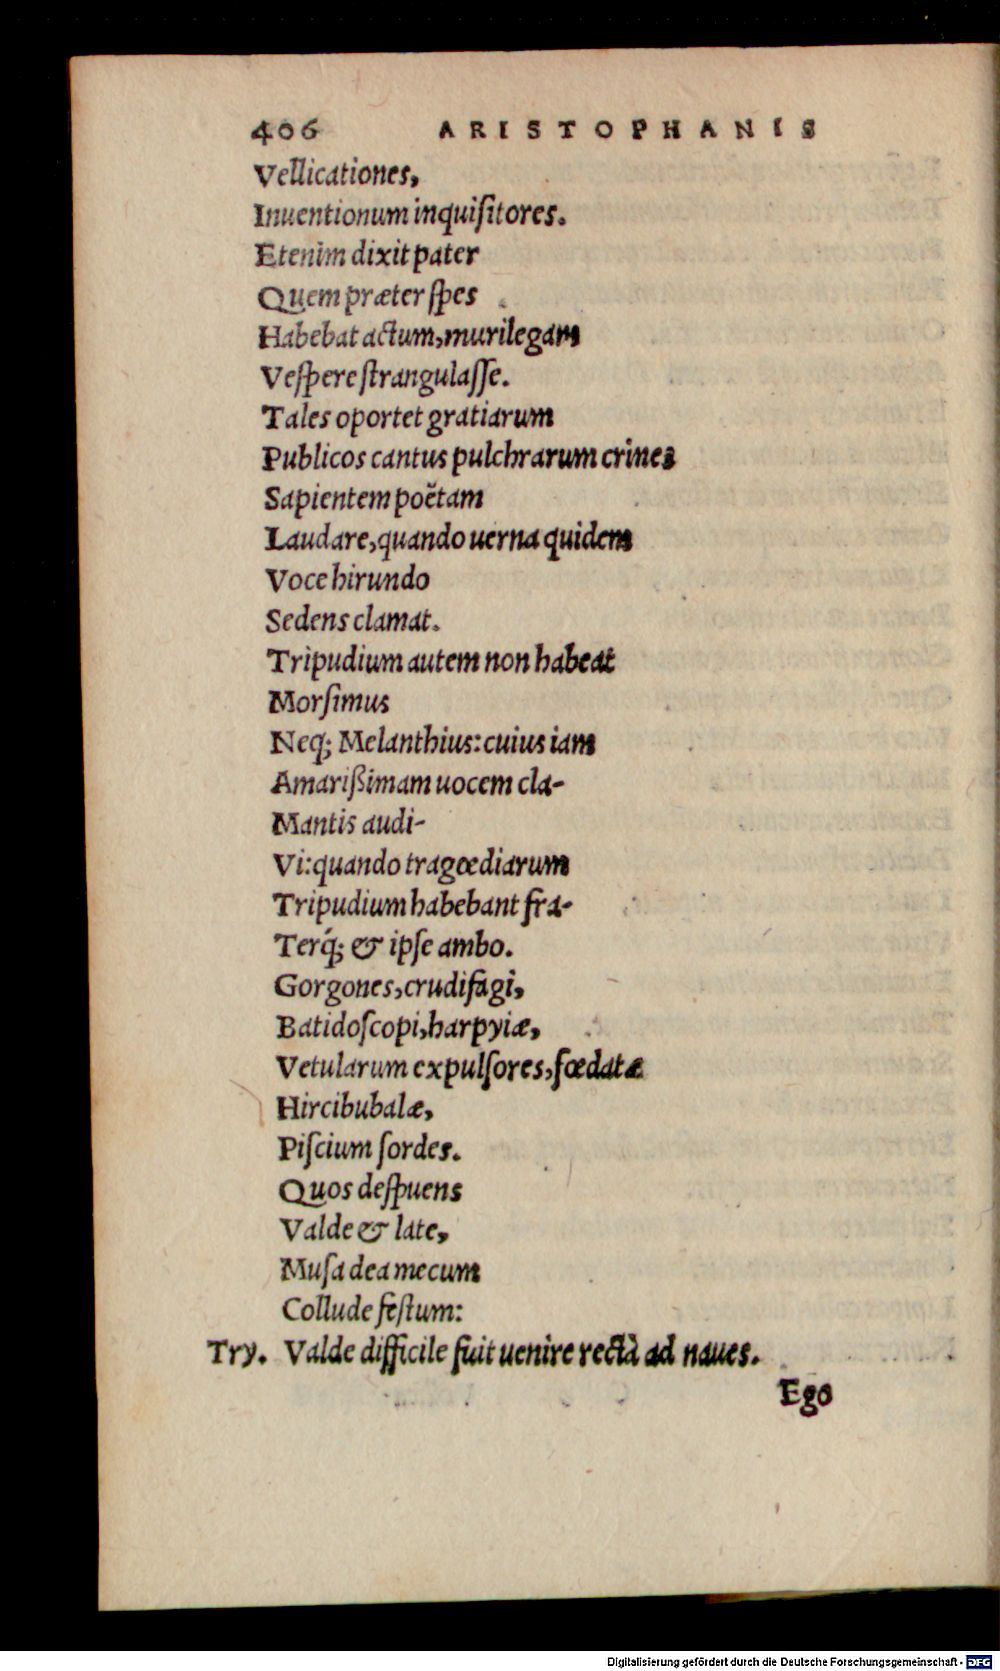 406 ARISTOPHANIS
Vellicationes,
Inuentionum inquiſitores.
Etenim dixit pater
Quem præter ſpes
Habebat actum, murilegam
Veſpere ſtrangulaſſe.
Tales oportet gratiarum
Publicos cantus pulchrarum crines
Sapientem poëtam
Laudare, quando uerna quidem
Voce hirundo
Sedens clamat.
Tripudium autem non habeat
Morſimus
Neq; Melanthius: cuius iam
Amarißimam uocem cla-
Mantis audi-
Vi: quando tragœdiarum
Tripudium habebant fra-
Terq́; & ipſe ambo.
Gorgones, crudifagi,
Batidoſcopi, harpyiæ,
Vetularum expulſores, fœdatæ
Hircibubalæ,
Piſcium ſordes.
Quos deſpuens
Valde & late,
Muſa dea mecum
Collude feſtum:
Try. Valde difficile fuit uenire rectà ad naues.
Ego
Digitalisierung gefördert durch die Deutsche Forschungsgemeinschaft - DFG